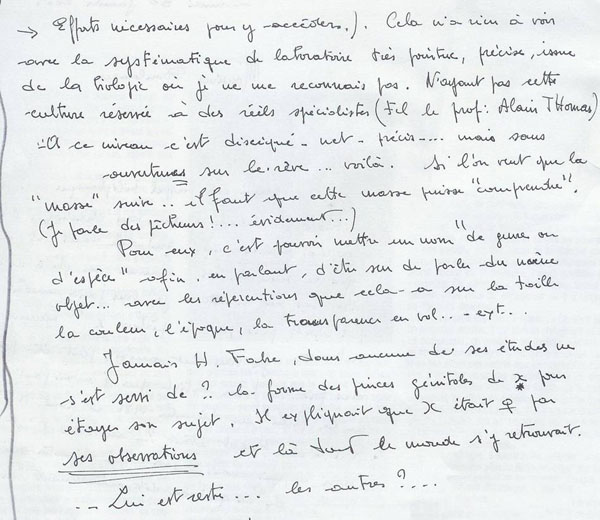 → Efforts nécessaires pour y accéder.). Cela n'a rien à voir
avec la systématique de laboratoire très pointue, précise, issue
de la biologie où je ne me reconnais pas. N'ayant pas cette
culture réservée à des réels spécialistes (tel le prof: Alain THomas)
- A ce niveau c'est disséqué - net - précis.... mais sans
ouvertures sur le rêve... voilà. Si l'on veut que la
"masse" suive.. il faut que cette masse puisse "comprendre".
(Je parle des pêcheurs!... évidement...)
Pour eux, c'est pouvoir mettre un nom "de genre ou
d'espèce" afin, en parlant, d'être sur de parler du même
objet... avec les répercutions que cela a sur la taille
la couleur, l'époque, la transparence en vol.. - ext..
Jamais H. Fabre, dans aucune de ses études ne
s'est servi de ? la forme des pinces génitales de x pour
étayer son sujet. Il expliquait que X était ♀ par
ses observations et là tout le monde s'y retrouvait.
... Lui est resté... les autres?...